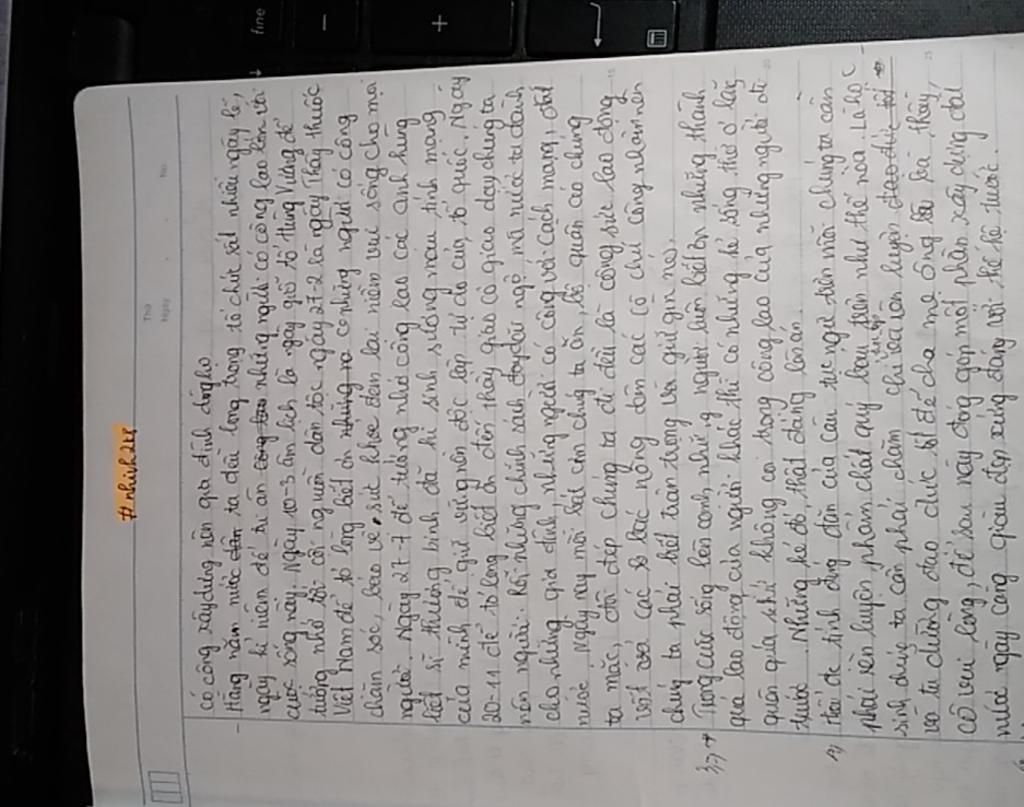 # nhinh2k8
Thứ
Ngày
No.
có công xây dựng nên gia đình dòng họ
- Hằng năm nước ta đều long trọng tổ chức rất nhiều ngày lễ,
ngày kỉ niệm để tri ân những người có công lao lớn với
cuộc sống này. Ngày 10-3 âm lịch là ngày giỗ tổ Hùng Vương để
tưởng nhớ tới cội nguồn dân tộc, ngày 27-2 là ngày Thầy thuốc
Việt Nam để tỏ lòng biết ơn những người có công
chăm sóc, bảo vệ sức khỏe đem lại niềm vui sống cho mọi
người. Ngày 27-7 để tưởng nhớ công lao các anh hùng
liệt sĩ thương binh đã hi sinh xương máu tính mạng
của mình để giữ vững nền độc lập tự do của tổ quốc, Ngày
20-11 để tỏ lòng biết ơn đến thầy giáo cô giáo dạy chúng ta
nên người. Rồi những chính sách đãi ngộ mà nước ta dành
cho những gia đình, những người có công với cách mạng, đất
nước. Ngày nay mỗi bát cơm chúng ta ăn, bộ quần áo chúng
ta mặc, đôi dép chúng ta đi đều là công sức lao động
vất vả các bác nông dân các cô chú công nhân nên
chúng ta phải biết trân trọng và giữ gìn nó.
Trong cuộc sống bên cạnh những người luôn biết ơn những thành
quả lao động của người khác thì có những kẻ sống thờ ơ lãng
quên quá khứ không coi trọng công lao của những người đi
trước. Những kẻ đó thật đáng lên án.
Thấy đc tính đúng đắn của câu tục ngữ trên mỗi chúng ta cần
phải rèn luyện phẩm chất quý báu như thế nào. Là học
sinh chúng ta cần phải chăm chỉ học tập rèn luyện đạo đức tốt
và tu dưỡng đạo đức tốt để cha mẹ ông bà, thầy
cô vui lòng, để sau này đóng góp một phần xây dựng đất
nước ngày càng giàu đẹp xứng đáng với thế hệ trước.